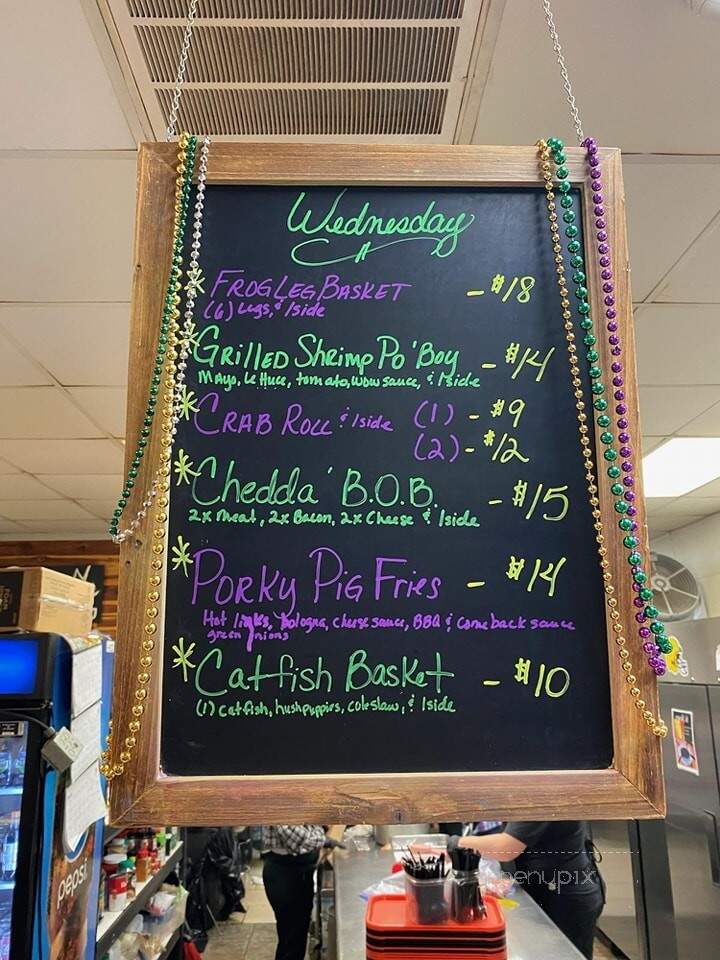 Wednesday
* Frog Leg Basket - $18
(6) Legs, & 1side
* Grilled Shrimp Po' Boy - $14
Mayo, lettuce, tomato, wow sauce, & 1side
* Crab Roll & 1side (1) - $9
(2) - $12
* Chedda' B.O.B. - $15
2x meat, 2x Bacon, 2x Cheese & 1side
* Porky Pig Fries - $14
Hot links, bologna, cheese sauce, BBQ & Comeback sauce
green onions
* Catfish Basket - $10
(1) catfish, hushpuppies, coleslaw, & 1side
pepsi
menupix